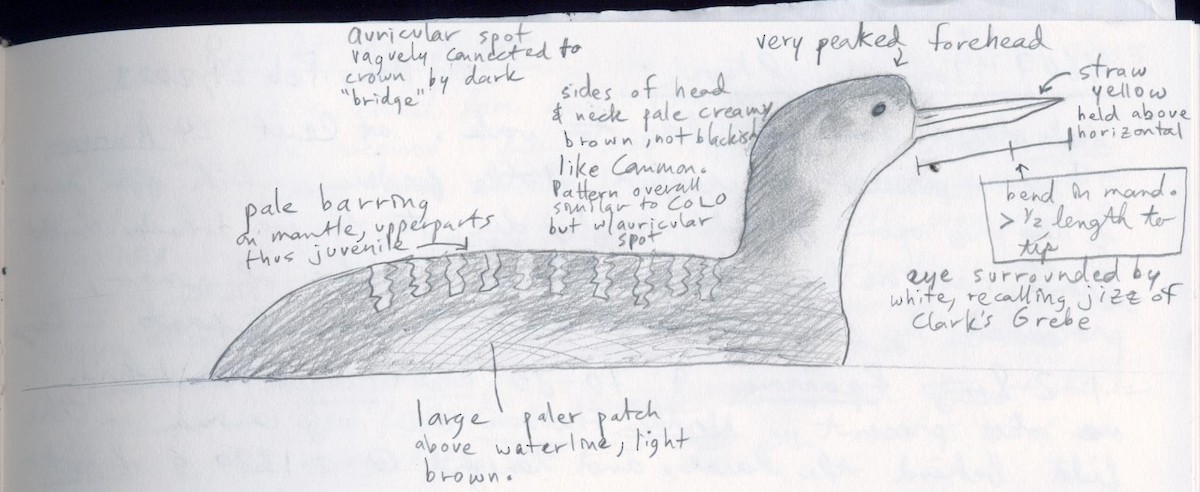 auricular spot
vaguely connected to
crown by dark
"bridge"
very peaked forehead
straw
yellow
held above
horizontal
sides of head
& neck pale creamy
brown, not blackish
like Common.
Pattern overall
similar to COLO
but w/auricular
spot
pale barring
on mantle, upperparts
thus juvenile
bend in mand.
> 1/2 length to
tip
eye surrounded by
white, recalling jizz of
Clark's Grebe
large paler patch
above waterline, light
brown.